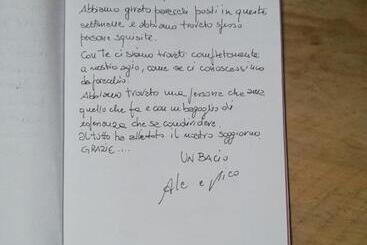 Abbiamo girato parecchi posti in queste
settimane e abbiamo trovato spesso
persone squisite.
Con te ci siamo trovati completamente
a nostro agio, come se ci conoscessimo
da parecchio.
Abbiamo trovato una persona che ama
quello che fa e con un bagaglio di
esperienza che sa condividere.
Il tutto ha allietato il nostro soggiorno
GRAZIE....
UN BACIO
Ale e Nico